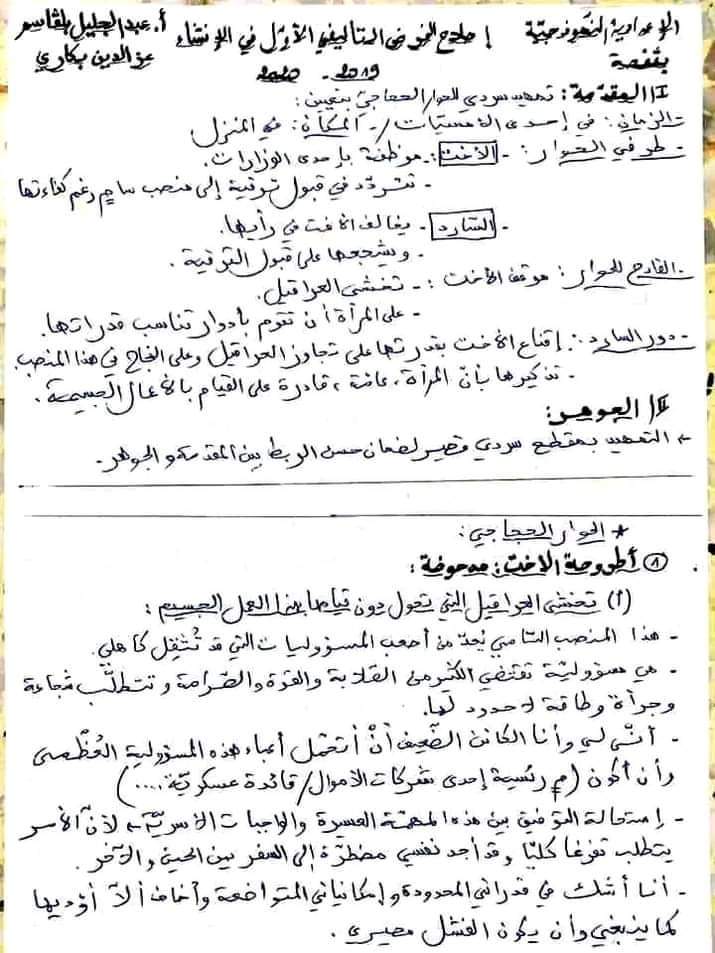 الإعدادية النموذجية إصلاح الفرض التأليفي الأوّل في الإنشاء أ. عبد الجليل بلقاسم
بقفصة 2019 - 2020 عز الدين بكاري
I) المقدّمة: تمهيد سردي للحوار الحجاجيّ بتعيين:
- الزمان: في إحدى الأمسيات /- المكان: في المنزل
- طرفي الحوار: - الأخت: - موظفة بإحدى الوزارات.
- تتردّد في قبول ترقية إلى منصب سام رغم كفاءتها
- السّارد - يخالف الأخت في رأيها.
- ويشجعها على قبول الترقية.
- القادح للحوار: موقف الأخت: - تخشى العراقيل.
- على المرأة أن تقوم بأدوار تناسب قدراتها.
- دور السارد: - إقناع الأخت بقدرتها على تجاوز العراقيل وعلى النجاح في هذا المنصب.
- تذكيرها بأنّ المرأة، عامّة، قادرة على القيام بالأعمال الجسيمة.
II) الجوهر:
← التمهيد بمقطع سردي قصير لضمان حسن الربط بين المقدمة والجوهر.
* الحوار الحجاجي:
① أطروحة الأخت: مدحوضة:
(أ) تخشى العراقيل التي تحول دون قيامها بهذا العمل الجسيم:
- هذا المنصب السّامي يُعدّ من أصعب المسؤوليات التي قد تُثقل كاهلي.
- هي مسؤوليّة تقتضي الكثير من الصّلابة والقوّة والصّرامة وتتطلّب شجاعة
وجرأة وطاقة لا حدود لها.
- أنّى لي وأنا الكائن الضّعيف أنْ أتحمّل أعباء هذه المسؤولية العُظْمى
وأن أكون (م رئيسة إحدى شركات الأموال/ قائدة عسكريّة....)
- استحالة التوفيق بين هذه المهمّة العسيرة والواجبات الأسريّة ← لأنّ الأمر
يتطلب تفرغا كليّا وقد أجد نفسي مضطرّة إلى السفر بين الحين والآخر.
- أنا أشك في قدراتي المحدودة وإمكانياتي المتواضعة وأخاف ألاّ أؤديها
كما ينبغي وأن يكون الفشل مصيري.